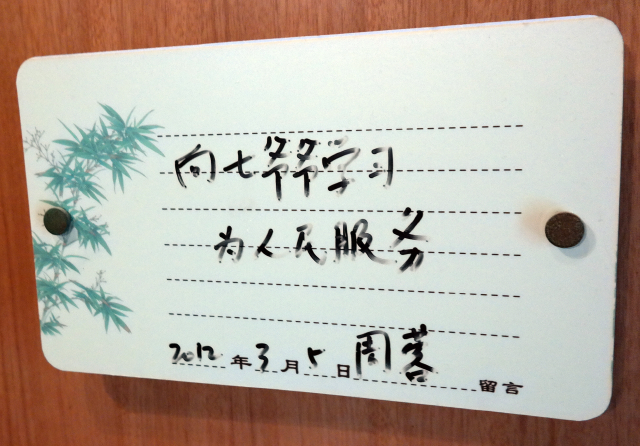 向七爷爷学习
为人民服务
2012年3月5日周蓉留言